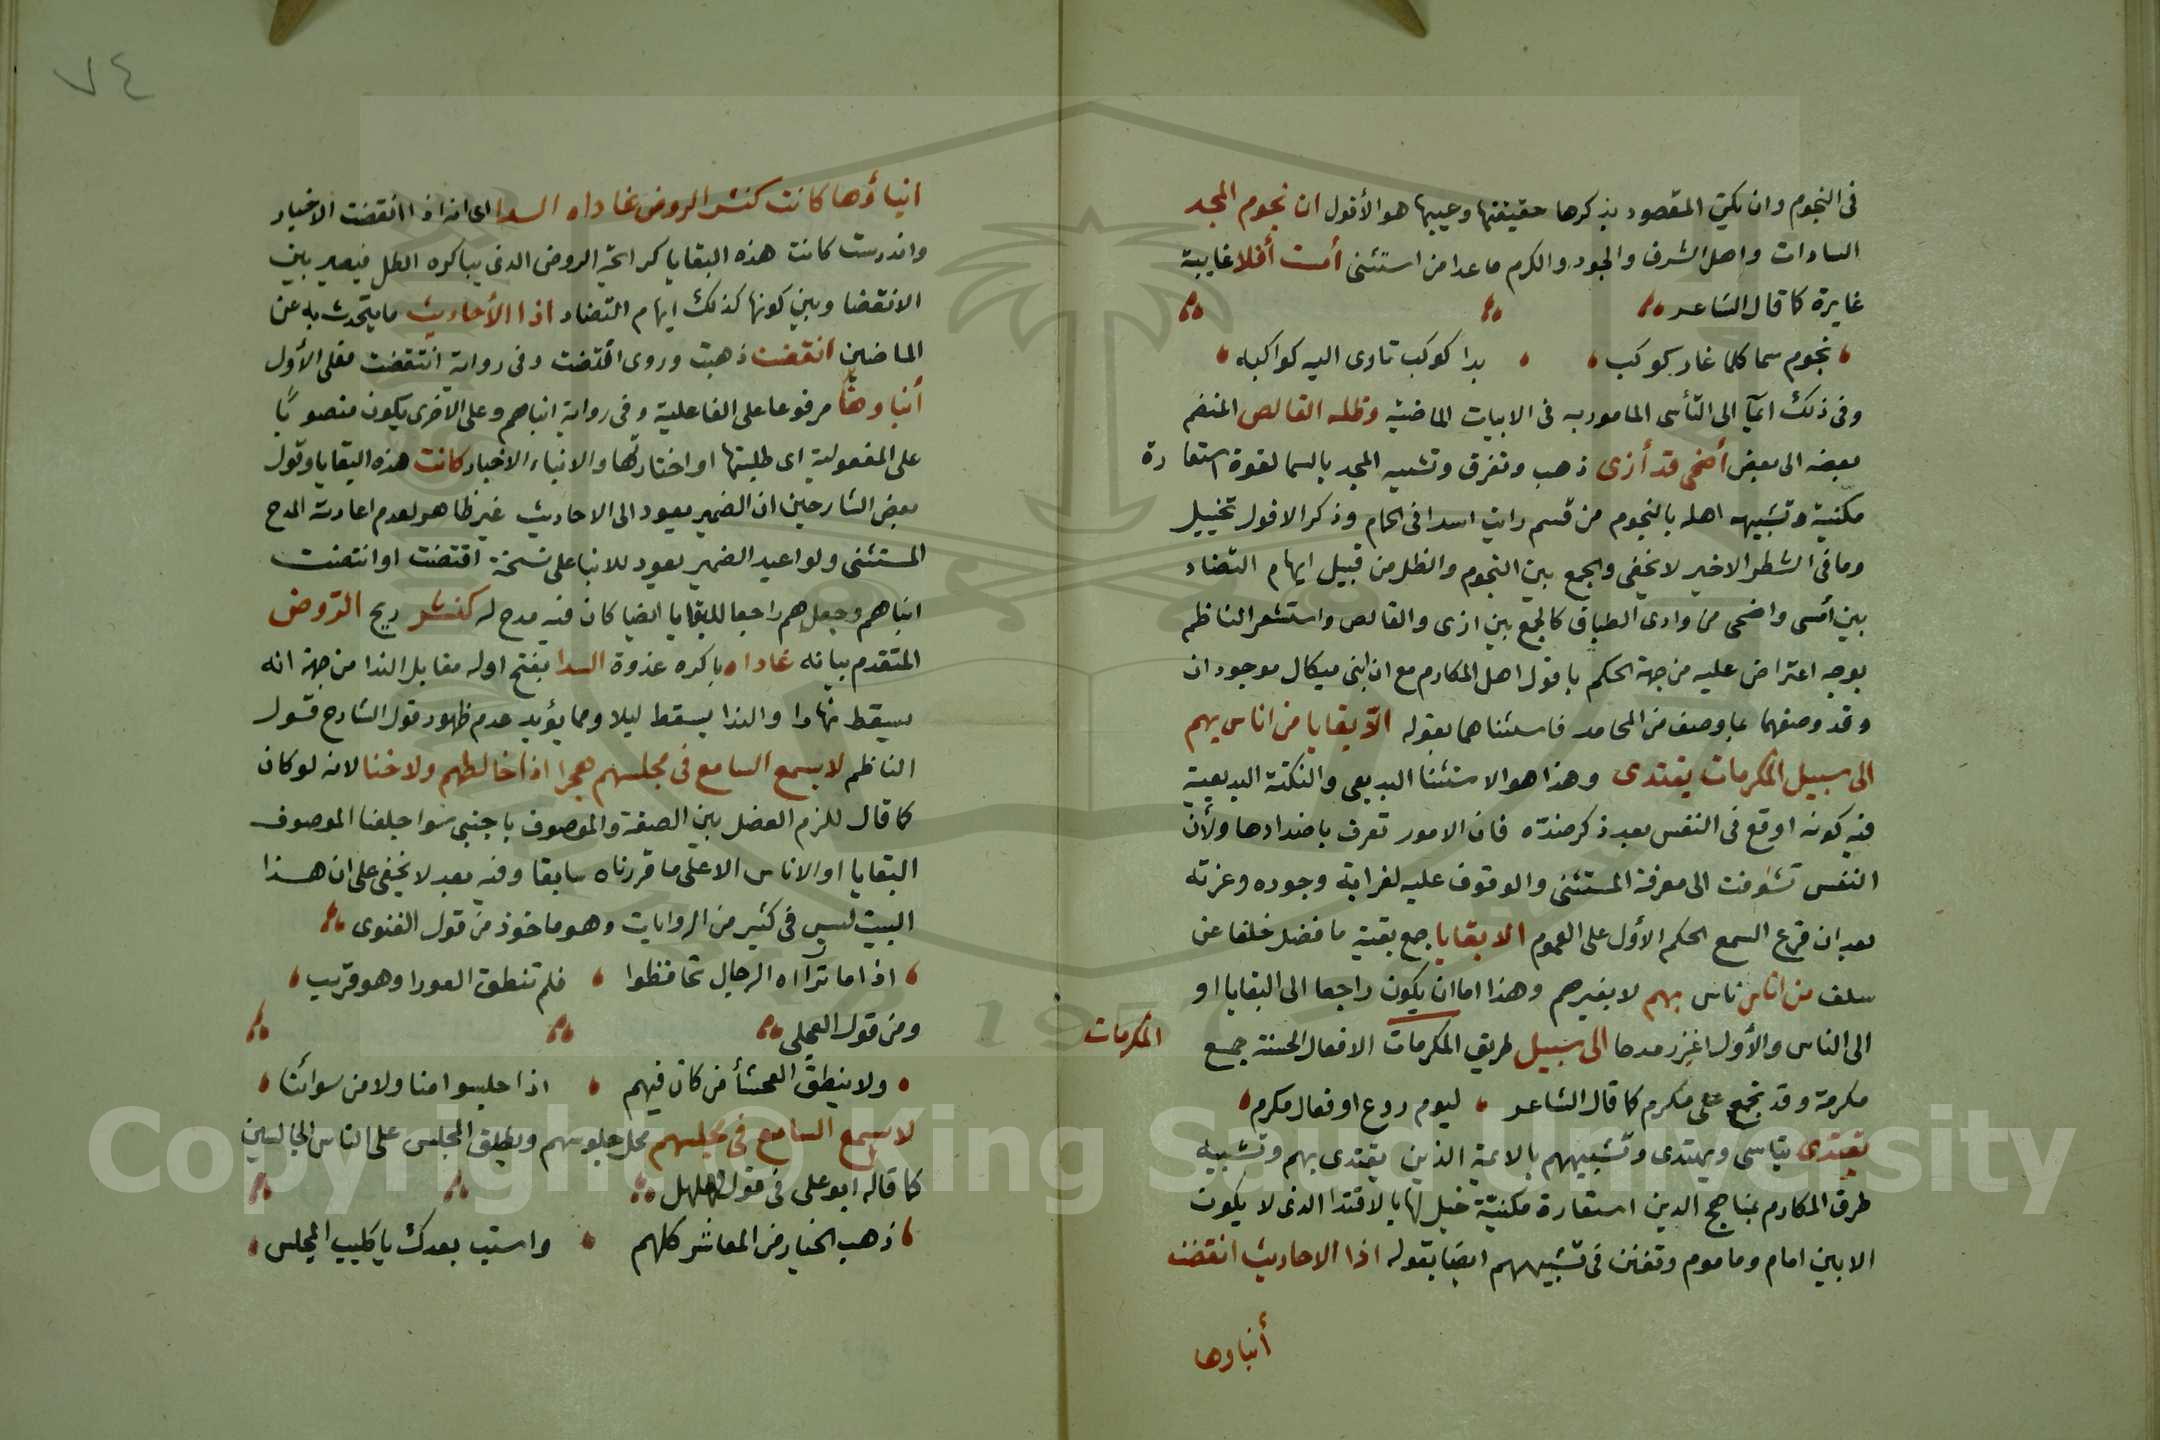 في النجوم وان يكن المقصود بذكرها حقيقتها وعيبها هو الأفول ان نجوم المجد
السادات واهل الشرف والجود والكرم ما عدا من استثنى أمست أفلا غايبة
غايرة كما قال الشاعر
نجوم سما كلما غار كوكب بدا كوكب تاوى اليه كواكبه
وفي ذلك ايمآ الى التأسى المامور به فى الابيات الماضية وظله القالص المنضم
بعضه الى بعض أضحى قد أزى ذهب وتفرق وتشبيه المجد بالسما لقوة استعارة
مكنية وتشبيه اهله بالنجوم من قسم رايت اسدا فى الحمام وذكر الافول تخييل
وما فى الشطر الاخير لا يخفى والجمع بين النجوم والظل من قبيل ايهام التضاد
بين أمسى واضحى من وادى الطباق كالجمع بين ازى والقالص واستشعر الناظم
بوجه اعتراض عليه من جهة الحكم بافول اهل المكارم مع ان ابنى ميكال موجودان
وقد وصفهما بما وصف من المحامد فاستثناهما بقوله الا بقايا من اناس بهم
الى سبيل المكرمات يقتدى وهذا هو الاستثنا البديعى والنكتة البديعية
فيه كونه اوقع فى النفس بعد ذكر ضده فان الامور تعرف باضدادها ولأن
النفس تشوفت الى معرفة المستثنى والوقوف عليه لغرابة وجوده وعزته
بعد ان قرع السمع الحكم الأول على العموم الا بقايا جمع بقية ما فضل خلفا عن
سلف من اناس ناس بهم لا بغيرهم وهذا اما ان يكون راجعا الى البقايا او
الى الناس والأول اغزر مدحا الى سبيل طريق المكرمات الافعال الحسنة جميع
المكرمات
مكرمة وقد تجمع على مكرم كما قال الشاعر ليوم روع او فعال مكرم
يقتدى يتاسى ويهتدى وتشبيههم بالايمة الذين يقتدى بهم وتشبيه
طرق المكارم بمناهج الدين استعارة مكنيّة خيل لها بالاقتدا الذى لا يكون
الا بين امام وماموم وتفنن فى تشبيههم ايضا بقوله اذا الاحاديث انقضت
أنباوها
٧٤
انباؤها كانت كنشر الروض غاداه السدا اى انه اذا انقضت الاخبار
واندرست كانت هذه البقايا كرائحة الروض الذى يباكره الطل فيصير بين
الانقضا وبين كونها كذلك ايهام التضاد اذا الأحاديث ما يتحدث به عن
الماضين انقضت ذهبت وروى اقتضت وفى رواية انتقضت فعلى الأول
أنباوها مرفوعا على الفاعلية وفى رواية انباهم وعلى الاخرى يكون منصوبًا
على المفعولية اى طلبتها او اختارتها والانباء الاخبار كانت هذه البقايا وقول
بعض الشارحين ان الضمير يعود الى الاحاديث غير ظاهر لعدم اعادته المدح
المستثنى ولو اعيد الضمير يعود للانبا على نسخة اقتضت او انتضت
انباهم وجعل هم راجعا للبقايا ايضا كان فيه مدح له كنشر ريح الرّوض
المتقدم بيانه غاداه باكره غدوة السدا بفتح اوله مقابل الندا من جهة انه
يسقط نهارا والندا يسقط ليلا ومما يؤيد عدم ظهور قول الشارح قول
الناظم لا يسمع السامع فى مجلسهم هجرا اذا خالطهم ولا خنا لانه لو كان
كما قال للزم الفصل بين الصفة والموصوف باجنبى سوا جعلنا الموصوف
البقايا او الاناس الا على ما قررناه سابقا وفيه بعد لا يخفى على ان هذا
البيت ليس فى كثير من الروايات وهو ماخوذ من قول الغنوى
اذا ما تراآه الرجال تحافظوا فلم تنطق العورا وهو قريب
ومن قول العجلى
ولا ينطق الفحشأ من كان فيهم اذا جلسوا منا ولا من سوائنا
لا يسمع السامع فى مجلسهم محل جلوسهم ويطلق المجلس على الناس الجالسين
كما قاله ابو على فى قول مهلهل
ذهب الخيار من المعاشر كلهم واستب بعدك يا كليب المجلس
Copyright © King Saud University
1957